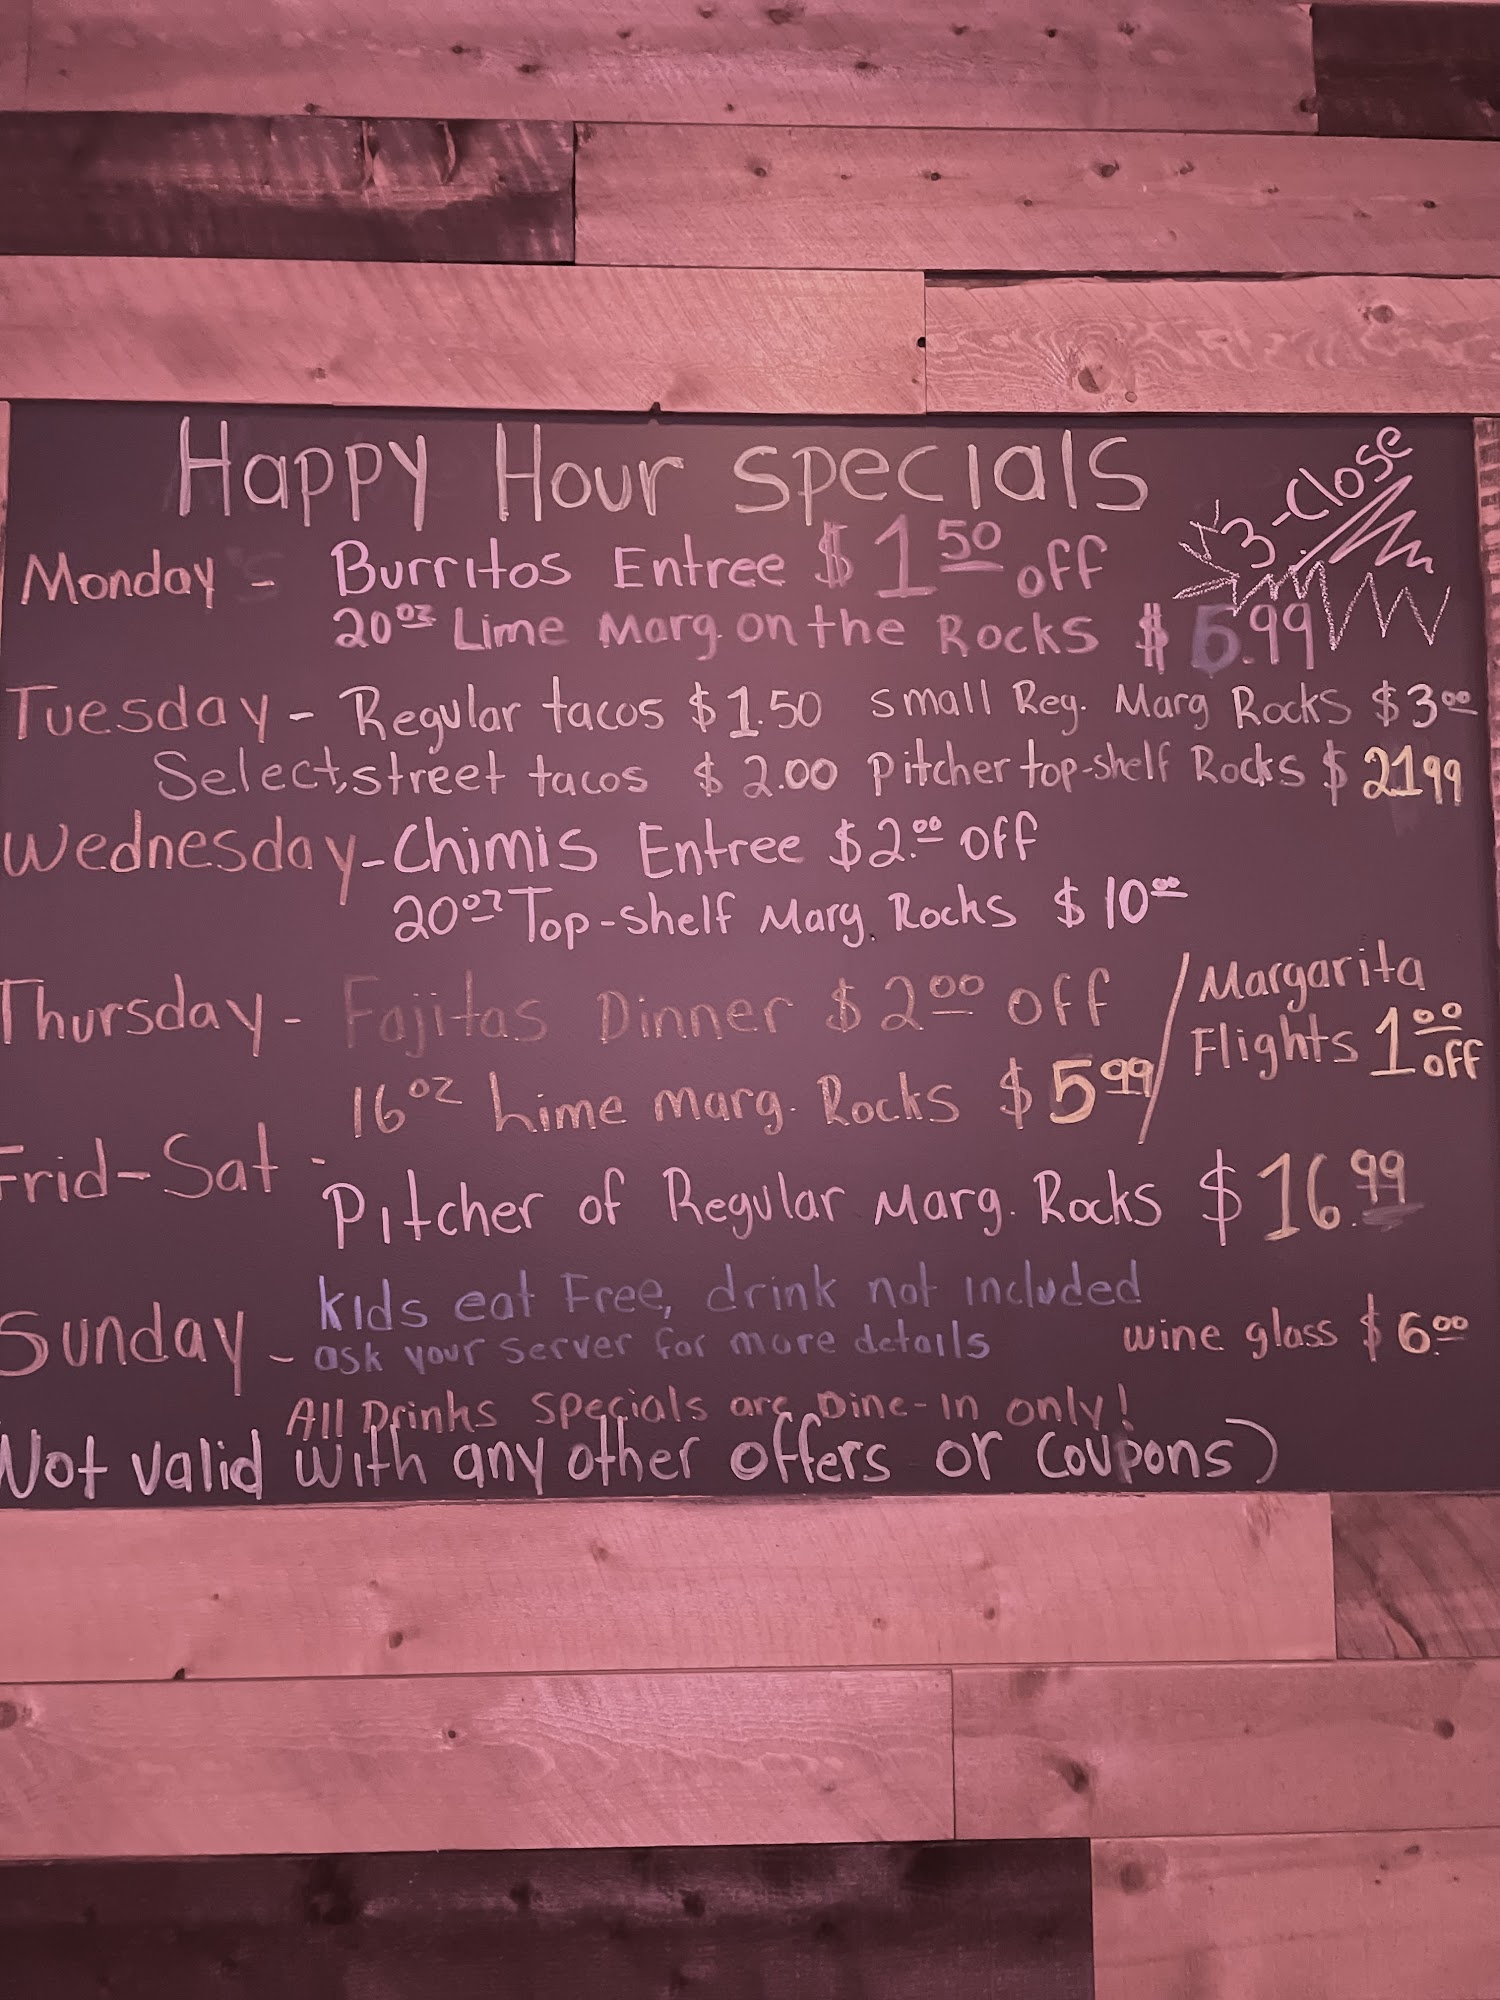 Happy Hour Specials
3-Close
Monday - Burritos Entree $1.50 off
20oz Lime Marg. on the Rocks $ .99
Tuesday - Regular tacos $1.50 small Reg. Marg Rocks $3.00
Select, street tacos $2.00 Pitcher top-shelf Rocks $2199
Wednesday - Chimis Entree $2.00 off
20oz Top-shelf Marg. Rocks $10.00
Thursday - Fajitas Dinner $2.00 off / Margarita
Flights 1.00 off
16oz Lime marg. Rocks $5.99
Frid-Sat - Pitcher of Regular Marg. Rocks $16.99
Sunday - kids eat Free, drink not included
ask your server for more details wine glass $6.00
All Drinks specials are Dine-In only!
Not valid with any other offers or coupons)